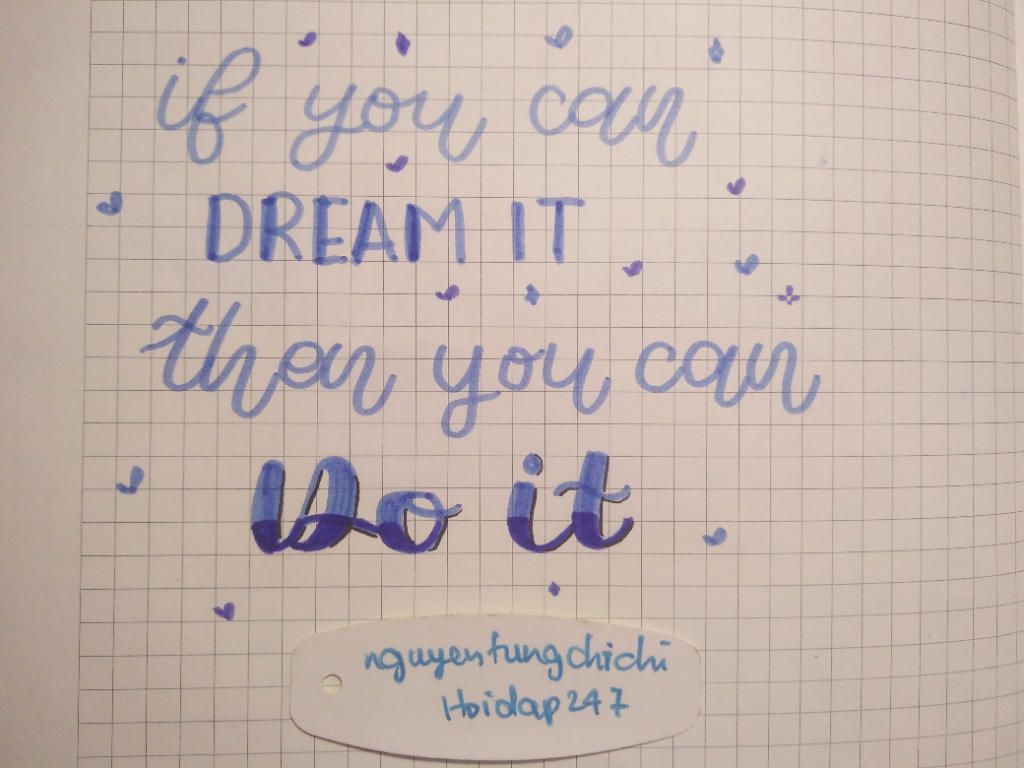 if you can
DREAM IT
then you can
Do it
nguyentungchichi
Hoidap247